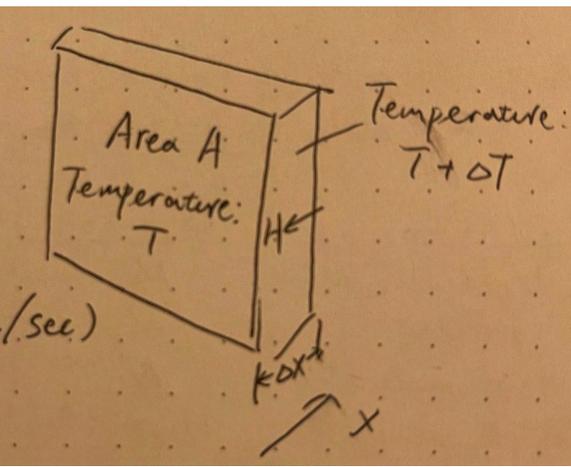 Area A
Temperature:
T
Temperature:
T + ΔT
H
/sec)
ΔX
X